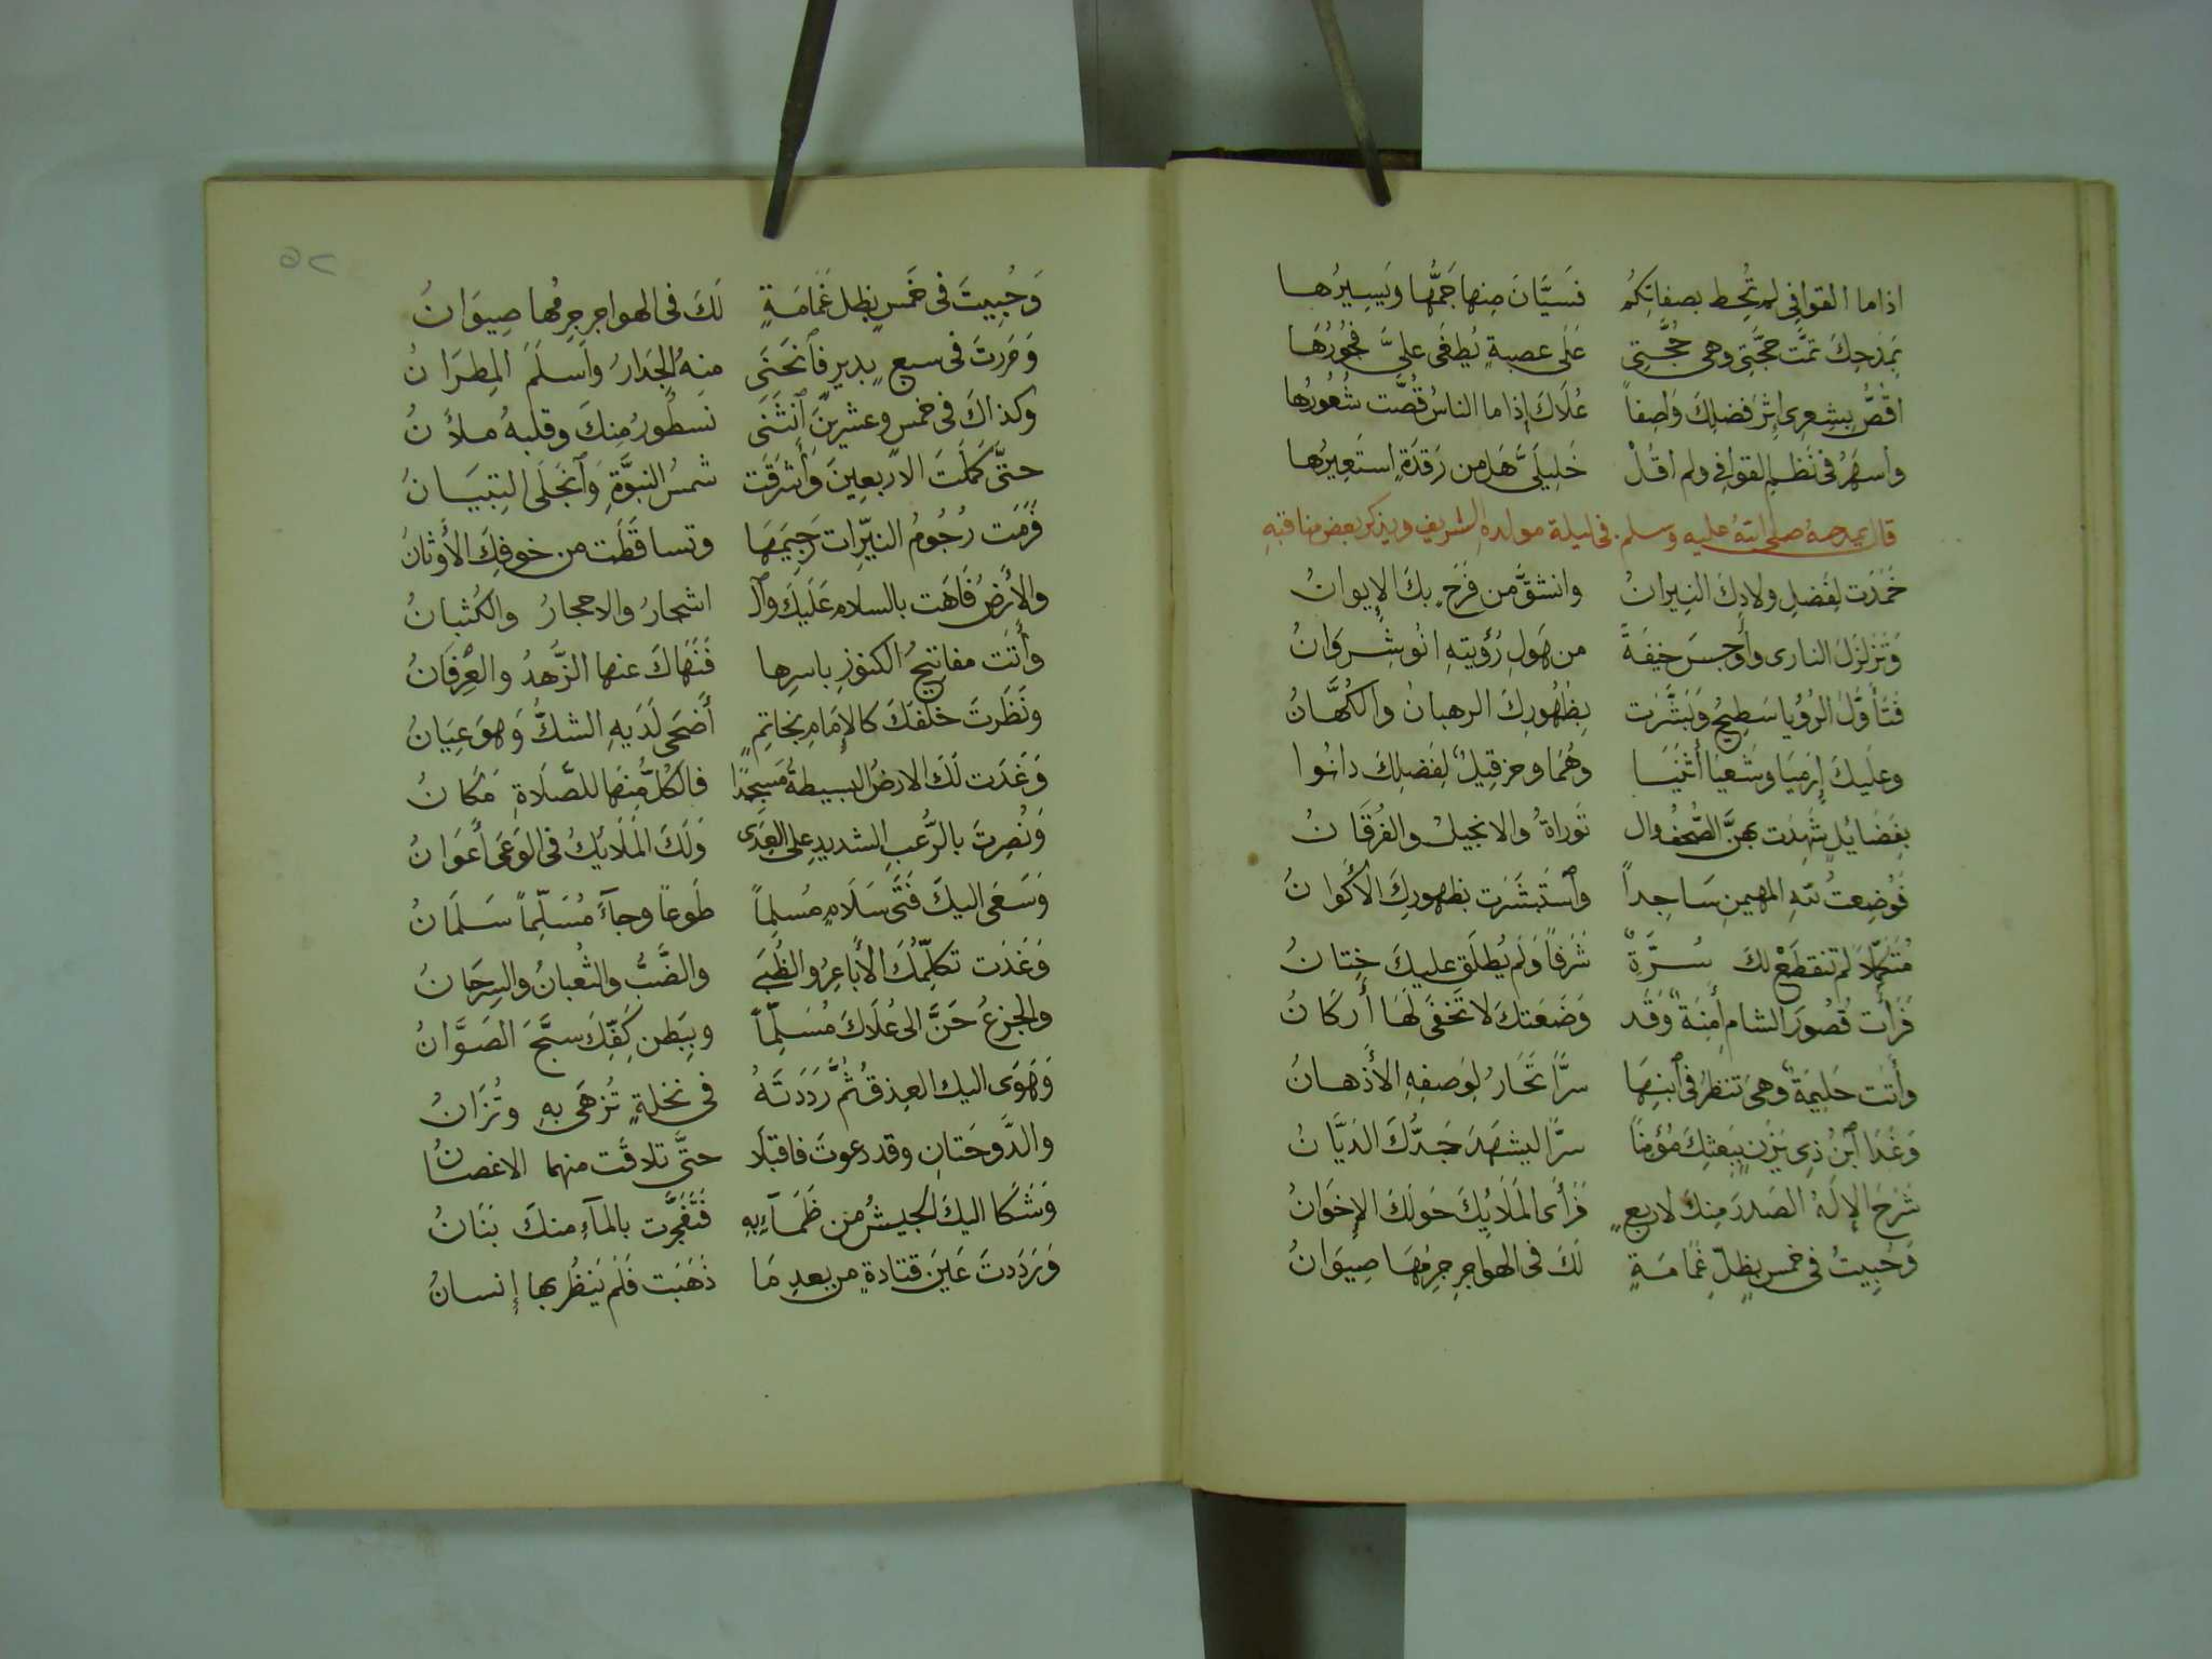 اذا ما القوافي لم تُحِط بصِفاتِكُم فَسيَّانَ مِنها جَمُّها وَيَسِيرُها
بمَدحِكَ تمَّت حجَّتي وهي حُجَّتِي عَلَى عصبةٍ يُطغَى عليَّ فجُورُهَا
اقُصُّ بِشِعرِي إثرَ فَضلِكَ وَاصِفاً عُلَاكَ إذا ما الناسُ قُصَّت شُعُورُها
واسهَرُ في نَظمِ القوافي ولم اقُلْ خَلِيلَيَّ هَل من رَقدَةٍ استَعِيرُها
قال يمدحه صلى الله عليه وسلم في ليلة مولده الشريف ويذكر بعض مناقبه
خَمَدَت لِفَضلِ ولادِكَ النِيرانُ وانشقَّ من فَرَحٍ بكَ الإيوانُ
وَتَزَلزَلَ النادى وأَوجسَ خيفَةً من هَولِ رُؤيتهِ انُوشِروَانُ
فتَأَوَّلَ الرُؤيا سَطِيحُ وَبَشَّرَت بِظُهُورِكَ الرهبانُ والكُهَّانُ
وعلَيكَ إِرمَيَا وشَعيَا أَثنَيَا وهُمَا وحزقِيلٌ لِفَضلِكَ دانُوا
بِفَضَايُلٍ شَهِدَت بهنَّ الصُّحفُ وال تَوراةُ والانجيلُ والفُرقَانُ
فَوُضِعتَ للهِ المهيمِنِ سَاجداً وٱستَبشَرَت بظهورِكَ الأَكوانُ
مُتَكَمِّلاً لم تنقطَعْ لكَ سُرَّةٌ شَرَفاً وَلَم يُطلَق عليكَ خِتانُ
فَرَأَت قُصُورَ الشام أمِنَةٌ وَقَد وَضَعَتكَ لا تَخفَى لَهَا أَركَانُ
وأَتَت حَلِيمَةٌ وهيَ تنظرُ في ٱبنِهَا سرًّا تَحَارُ لِوَصفِهِ الأَذهانُ
وَغَدَا ٱبنُ ذِي يَزَنٍ بِبَعثِكَ مُؤمِنًا سرًّا ليشهَدَ جَدُّكَ الدَيَّانُ
شَرَحَ الإلَهُ الصَدرَ مِنكَ لاربعٍ فَرَأَى المَلَايُكَ حَولَكَ الإخوَانُ
وَحُبِيتَ في خمسٍ بِظِلِّ غَمَامَةٍ لَكَ في الهواجرِ جِرمُهَا صِيوَانُ
٥٢
وَحُبِيتَ في خَمسٍ بظل غَمَامَةٍ لَكَ في الهواجرِ جِرمُها صِيوَانُ
وَمَررتَ في سبعٍ بديرٍ فٱنحَنَى منهُ الجَدارُ وأسلَمَ المِطرَانُ
وكذاكَ في خمسٍ وعشرينَ ٱنثَنَى نَسطُورُ مِنكَ وقلبهُ ملأَنُ
حتَّى كَمَلتَ الاربعِينَ وَأَشرَقَت شمسُ النبوَّةِ وَٱنجَلَى التِبيَانُ
فَرَمَت رُجُومُ النيّراتِ رَجِيمَهَا وتساقَطَت من خوفِكَ الأوثانُ
والأَرضُ فَاهَت بالسلامِ عَلَيكَ وٱل اشجارُ والاحجارُ والكُثبانُ
وأَتَت مفاتيحُ الكنوزِ باسرِها فَنَهَاكَ عنها الزُّهدُ والعِرفَانُ
ونَظَرتَ خلفَكَ كالإمَامِ بخاتِمٍ أَضحَى لَدَيهِ الشكُّ وَهوَ عِيَانُ
وَغَدَت لَكَ الارضُ البسيطةُ مَسجِدًا فالكُلُّ مِنها للصَّلَاةِ مَكَانُ
وَنُصِرتَ بالرُّعبِ الشديدِ على العِدَى وَلَكَ المَلَايُكُ في الوَغَى أَعوَانُ
وَسَعَى اليكَ فَتَى سَلَامٍ مُسلِماً طَوعاً وجآءَ مُسَلِّماً سَلمَانُ
وَغَدَت تكلِّمُكَ الأَباعِرُ والظُبَي والضَّبُّ والثعُبانُ والسِرحَانُ
والجزعُ حَنَّ الى عُلَاكَ مُسَلِّماً وبِبَطنِ كَفِّكَ سبَّحَ الصَوَّانُ
وَهَوَى اليك العِذقُ ثُمَّ رَدَدتَهُ في نخلةٍ تُزهَى بهِ وتُزَانُ
والدَّوحَتانِ وقد دعوتَ فاقبَلَا حتَّى تلاقَت منهما الاغصانُ
وَشَكَا اليكَ الجيشُ من ظَمَآءِيهِ فَتَفجَّرَت بالمآءِ منكَ بَنَانُ
وَرَدَدتَ عَينَ قتادةٍ من بعدِ مَا ذَهَبَت فَلَم يَنظُر بها إنسانُ